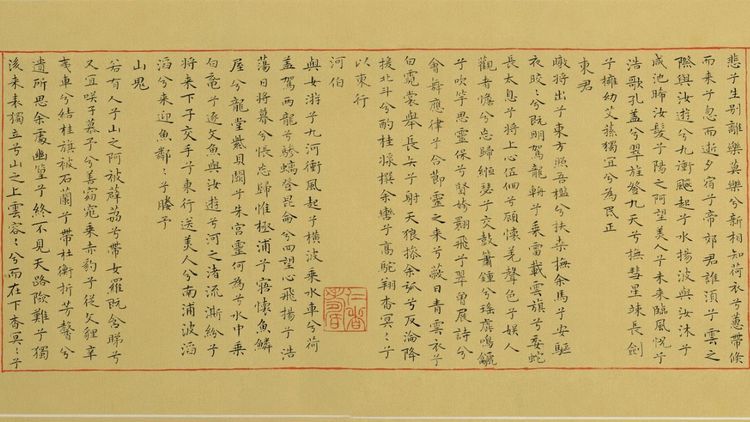 悲兮生别離樂莫樂兮新相知荷衣兮蕙帶倏
而來兮忽而逝夕宿兮帝郊君誰須兮雲之
際與汝遊兮九衝飈起兮水揚波與汝沐兮
咸池晞汝髮兮陽之阿望美人兮未來臨風怳兮
浩歌孔蓋兮翠旍登九天兮撫彗星竦長劍
兮擁幼艾蓀獨宜兮為民正
東君
暾將出兮東方照吾檻兮扶桒撫余馬兮安驅
衣皎〻兮既明駕龍輈兮乘雷載雲旗兮委蛇
長太息兮將上心低佪兮顧懷羌聲色兮娛人
觀者憺兮忘歸緪瑟兮交鼓簫鍾兮瑤簴鳴鷈
兮吹竽思靈保兮賢姱翾飛兮翠曾展詩兮
會舞應律兮合節靈之來兮蔽日青雲衣兮
白霓裳舉長矢兮射天狼操余弧兮反淪降
援北斗兮酌桂漿撰余轡兮高駝翔杳冥〻兮
以東行
河伯
與女游兮九河衝風起兮橫波乘水車兮荷
蓋駕兩龍兮驂螭登昆侖兮四望心飛揚兮浩
蕩日將暮兮悵忘歸惟極浦兮寤懷魚鱗
屋兮龍堂紫貝闕兮朱宮靈何為兮水中乘
白黿兮逐文魚與汝遊兮河之渚流澌紛兮
將来下兮交手兮東行送美人兮南浦波滔
滔兮来迎魚鄰〻兮媵予
山鬼
若有人兮山之阿被薜荔兮帶女蘿既含睇兮
又宜咲兮慕予兮善窈窕乘赤豹兮從文貍辛
夷車兮結桂旗被石蘭兮帶杜衡折芳馨兮
遺所思余處幽篁兮終不見天路險難兮獨
後来表獨立兮山之上雲容〻兮而在下杳冥〻兮